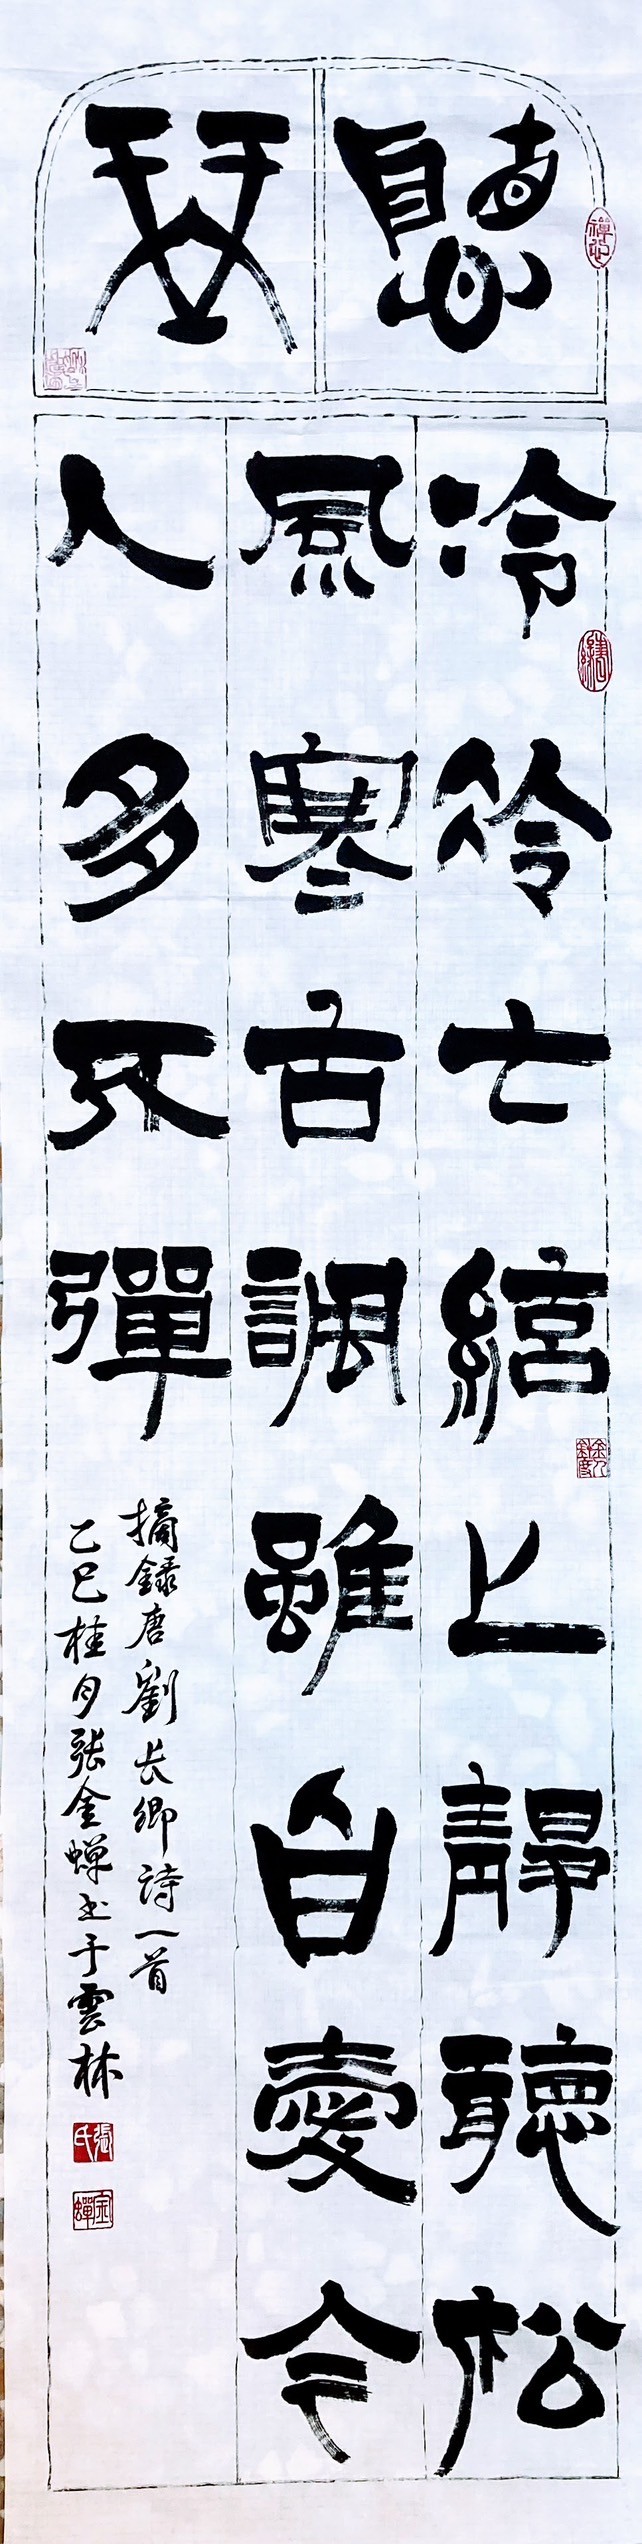 聽琴
冷冷七絃上靜聽松
風寒古調雖自愛今
人多不彈
摘錄唐劉長卿詩一首
乙巳桂月張金蟬书于雲林
張氏
金蟬